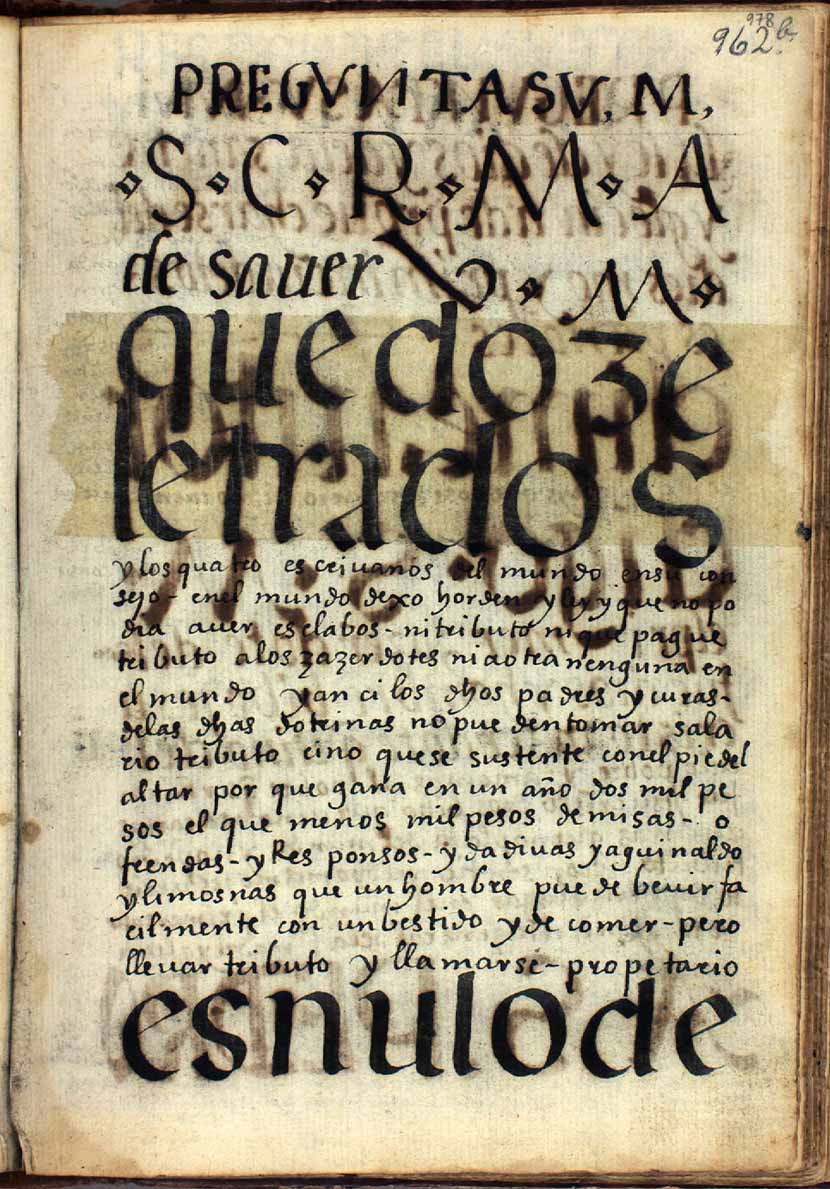 978
962
PREGVNTA SV, M,
S·C·R·M·A
de sauer V·M·
que doze
letrados
y los quatro escriuanos del mundo en su con
sejo - en el mundo dexo horden y ley y que no po
dia auer esclabos - ni tributo ni que pague
tributo a los zazerdotes ni a otra nenguna en
el mundo y anci los dhos padres y curas -
de las dhas dotrinas no pueden tomar sala
rio tributo cino que se sustente con el pie del
altar por que gana en un año dos mil pe
sos el que menos mil pesos de misas - o
frendas - y Responsos - y dadiuas y aguinaldo
y limosnas que un hombre puede beuir fa
cilmente con un bestido y de comer - pero
lleuar tributo y llamarse - propetario
es nulo de